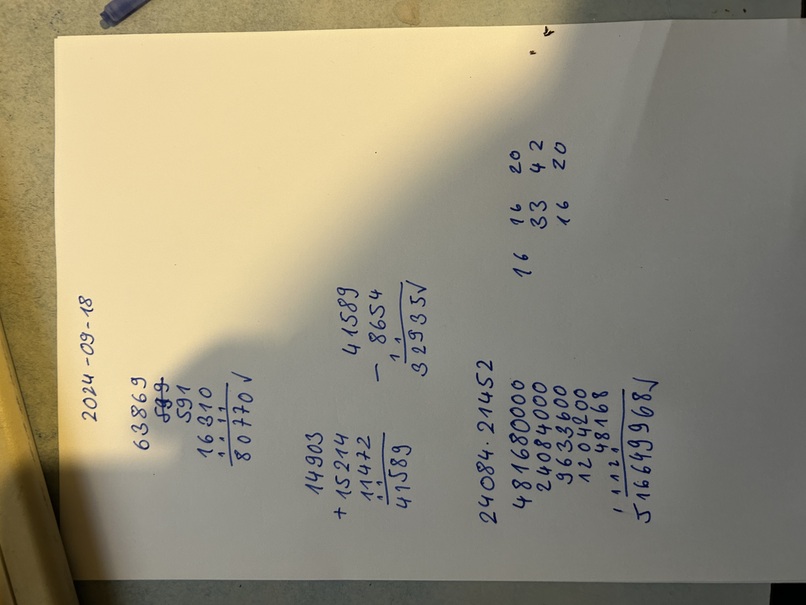 2024-09-18
63869
599
591
16310
1 1 1 1
80770✓
14903
+ 15214
11472
1 1
41589
41589
- 8654
1 1
32935✓
24084 · 21452
481680000
24084000
9633600
1204200
48168
1 1 1 2 1
516649968✓
16 16 20
33 42
16 20